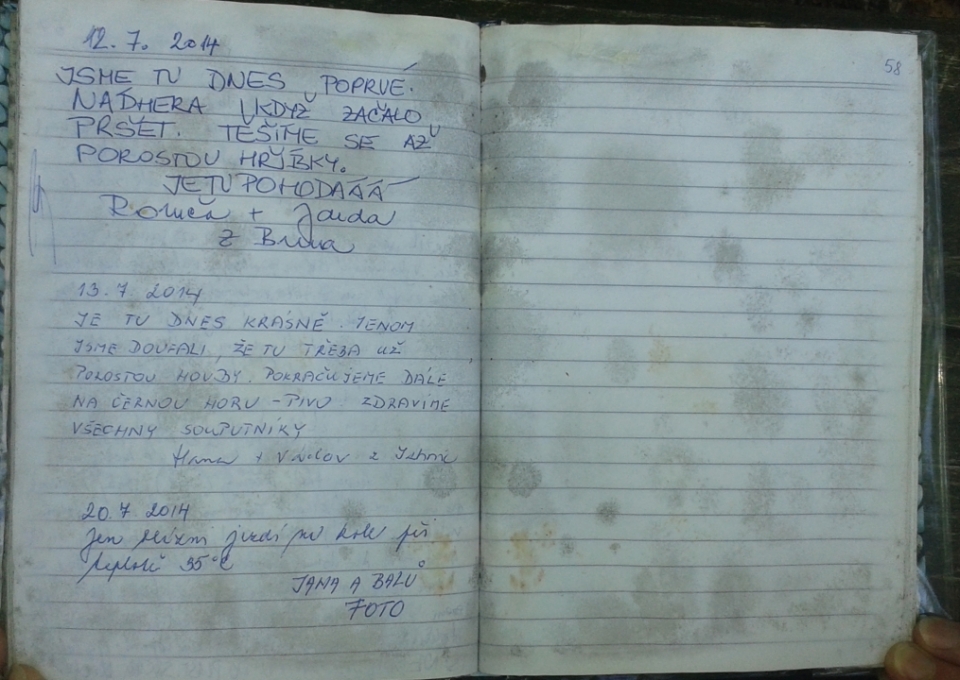 12. 7. 2014
JSME TU DNES POPRVÉ.
NÁDHERA I KDYŽ ZAČALO
PRŠET. TĚŠÍME SE AŽ
POROSTOU HŘÍBKY.
JE TU POHODÁÁÁ
+ Jarda
Z Brna
13. 7. 2014
JE TU DNES KRÁSNĚ. JENOM
JSME DOUFALI, ŽE TU TŘEBA UŽ
POROSTOU HOUBY. POKRAČUJEME DÁLE
NA ČERNOU HORU - PIVO. ZDRAVÍME
VŠECHNY SOUPUTNÍKY
Hana + z
20. 7. 2014
jen blázni jezdí na kole při
teplotě 35°C
JANA A BALŮ
FOTO
58